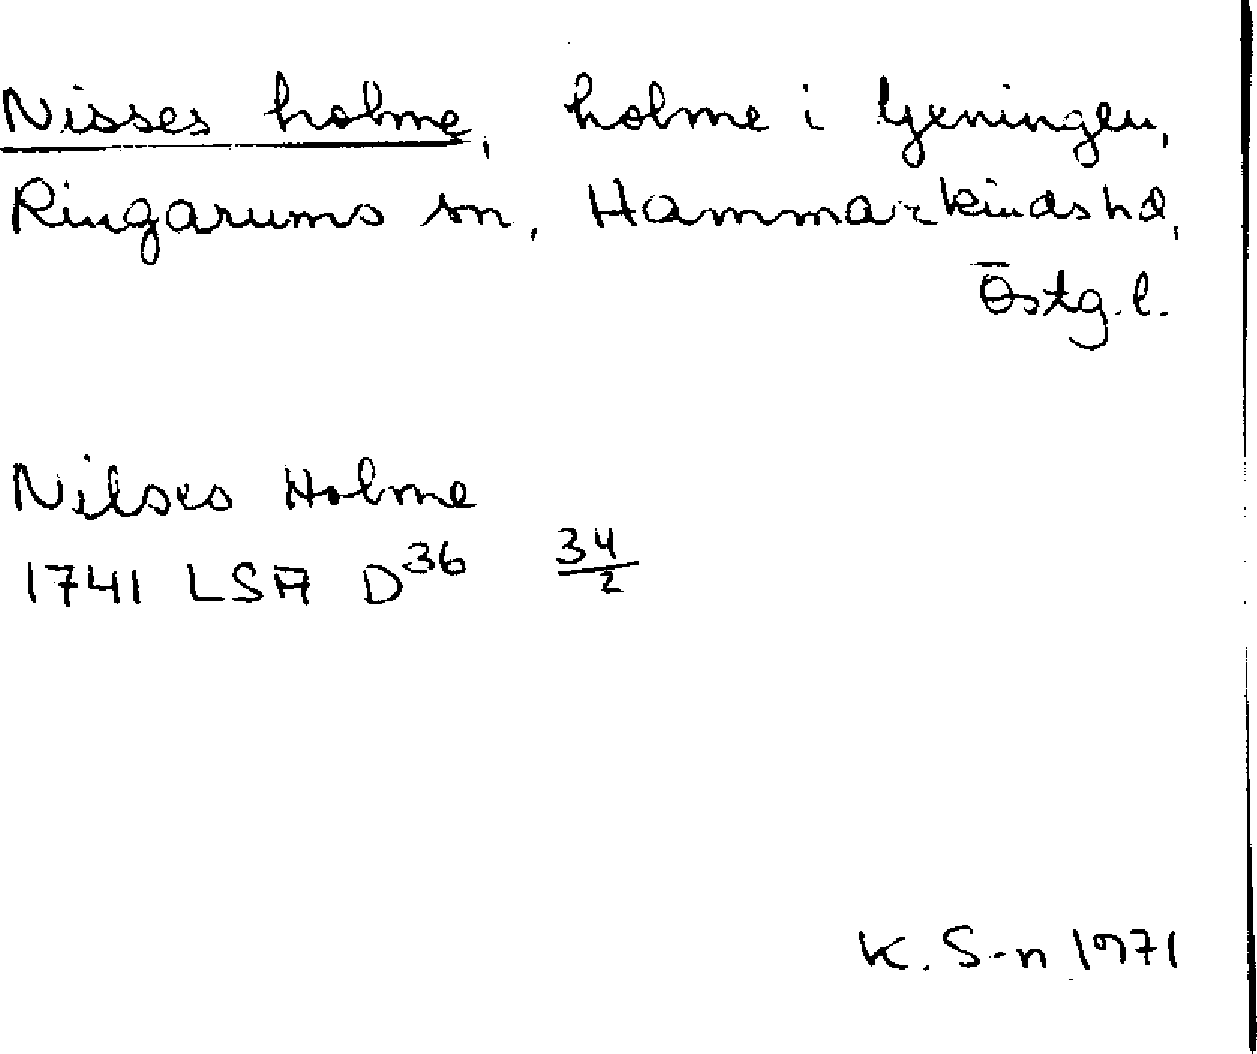 Nisses holme, holme i Yxningen,
Ringarums sn, Hammarkinds hd,
Östg. l.
Nilses Holme
1741 LSA D36 34/2
K. S-n 1971